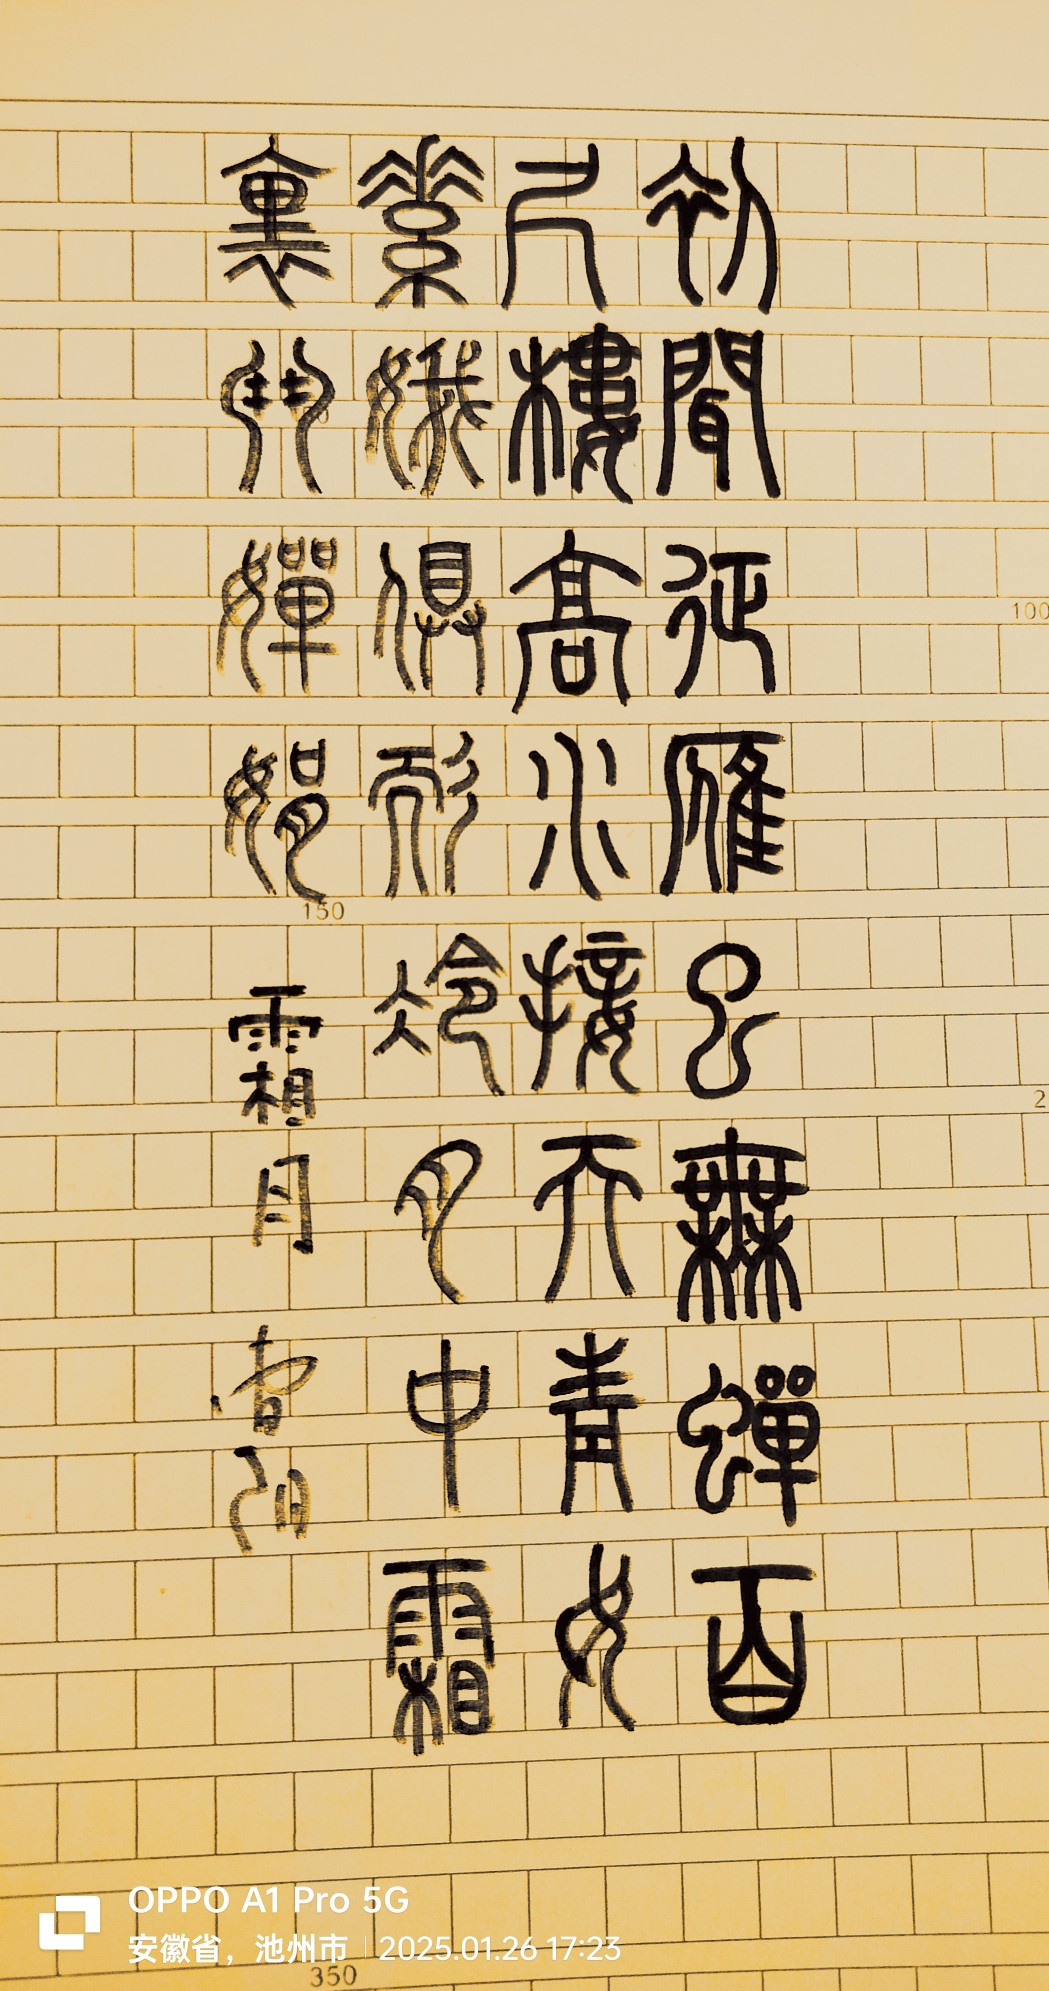 初聞征雁已無蟬百
尺樓高水接天青女
素娥俱耐冷月中霜
裏鬥嬋娟 霜月
100
150
2
350
OPPO A1 Pro 5G
安徽省，池州市 | 2025.01.26 17:23